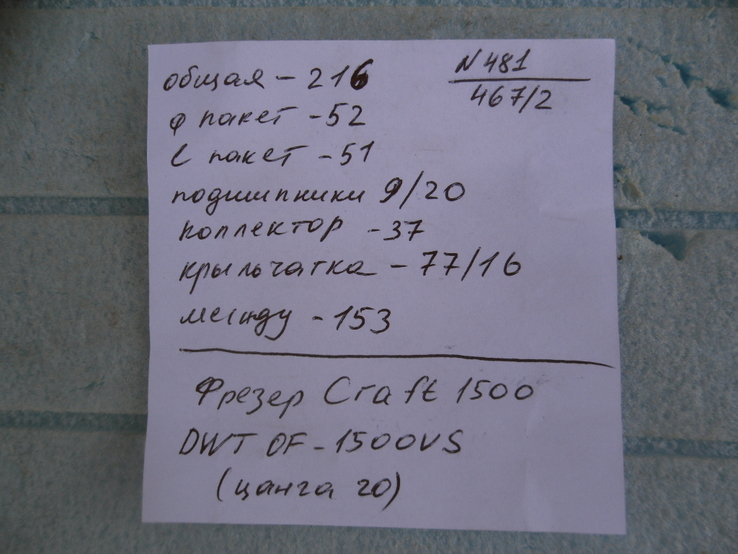 общая - 216
N 481
467/2
φ пакет - 52
l пакет - 51
подшипники 9/20
коллектор - 37
крыльчатка - 77/16
между - 153
Фрезер Craft 1500
DWT OF-1500VS
(цанга 20)